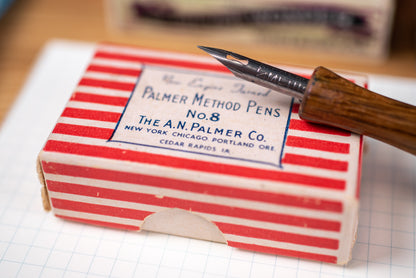 Palmer Method Pens
No. 8
The A. N. Palmer Co.
New York Chicago Portland Ore
Cedar Rapids Ia.